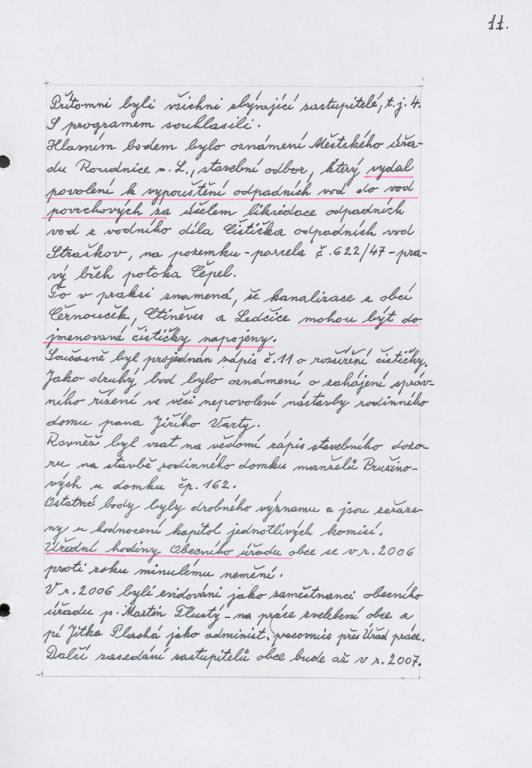 11.
Přítomni byli všichni zbývající zastupitelé, t.j. 4.
S programem souhlasili.
Hlavním bodem bylo oznámení Městského úřa-
du Roudnice n. L., stavební odbor, který vydal
povolení k vypouštění odpadních vod do vod
povrchových za účelem likvidace odpadních
vod z vodního díla Čistička odpadních vod
Straškov, na pozemku - parcela č. 622/47 - pra-
vý břeh potoka Čepel.
To v praksi znamená, že kanalizace z obcí
Černouček, Ctiněves a Ledčice mohou být do
jmenované čističky napojeny.
Současně byl projednán zápis č. 11 o rozšíření čističky.
Jako druhý bod bylo oznámení o zahájení správ-
ního řízení ve věci nepovolení nástavby rodinného
domu pana Jiřího Varty.
Rovněž byl vzat na vědomí zápis stavebního dozo-
ru na stavbě rodinného domku manželů Bružino-
vých u domku čp. 162.
Ostatné body byly drobného významu a jsou zařaze-
ny u hodnocení kapitol jednotlivých komisí.
Úřední hodiny Obecního úřadu obce se v r. 2006
proti roku minulému nemění.
V r. 2006 byli evidováni jako zaměstnanci obecního
úřadu p. Martin Tlustý - na práce zvelebení obce a
pí Jitka Plachá jako administ. pracovnice přes Úřad práce.
Další zasedání zastupitelů obce bude až v r. 2007.